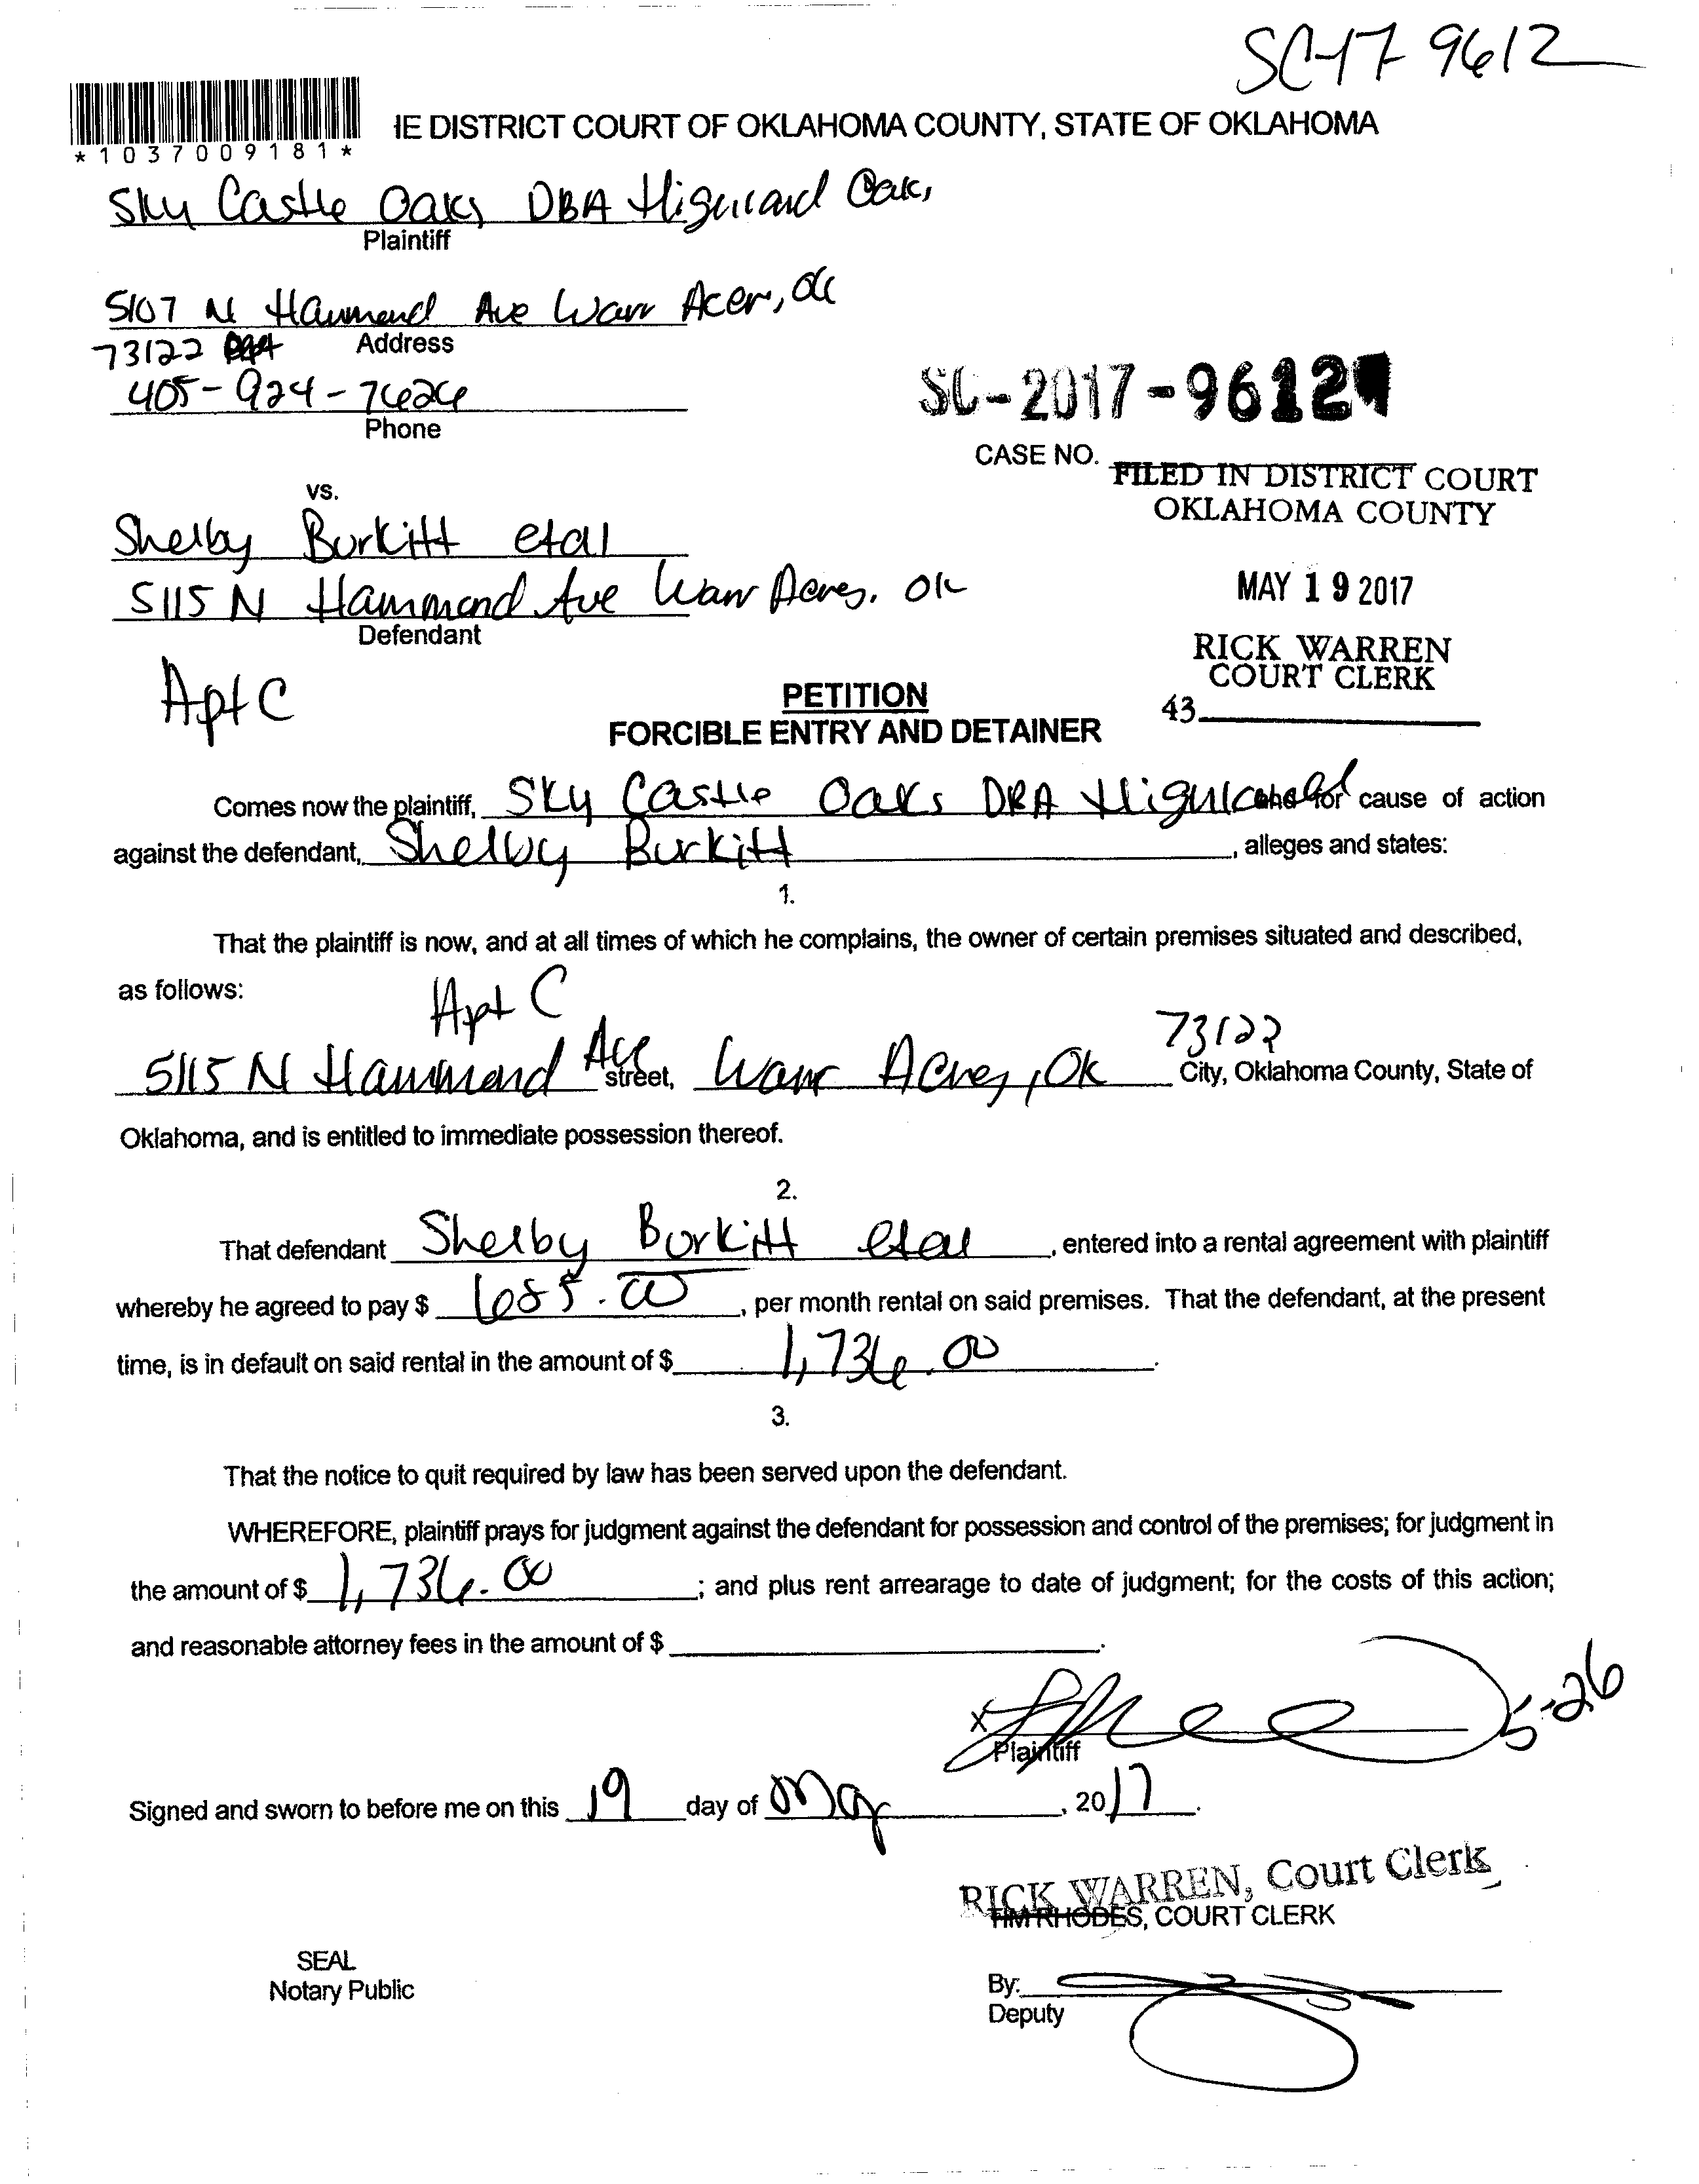 SC-17 9612
*1037009181*
IE DISTRICT COURT OF OKLAHOMA COUNTY, STATE OF OKLAHOMA
Sky Castle Oaks DBA Highland Oaks
Plaintiff
5107 N Hammond Ave Warr Acers, OK
73122
Address
405-924-7626
Phone
SC-2017-9612
CASE NO.
FILED IN DISTRICT COURT
OKLAHOMA COUNTY
vs.
Shelby Burkitt etal
5115 N Hammond Ave Warr Acres, OK
Defendant
Apt C
MAY 19 2017
RICK WARREN
COURT CLERK
43
PETITION
FORCIBLE ENTRY AND DETAINER
Comes now the plaintiff, Sky Castle Oaks DBA Highland and for cause of action
against the defendant, Shelby Burkitt, alleges and states:
1.
That the plaintiff is now, and at all times of which he complains, the owner of certain premises situated and described,
as follows:
Apt C
5115 N Hammond Ave street, Warr Acres, OK 73122 City, Oklahoma County, State of
Oklahoma, and is entitled to immediate possession thereof.
2.
That defendant Shelby Burkitt etal, entered into a rental agreement with plaintiff
whereby he agreed to pay $ 685.00, per month rental on said premises. That the defendant, at the present
time, is in default on said rental in the amount of $ 1,736.00.
3.
That the notice to quit required by law has been served upon the defendant.
WHEREFORE, plaintiff prays for judgment against the defendant for possession and control of the premises; for judgment in
the amount of $ 1,736.00; and plus rent arrearage to date of judgment; for the costs of this action;
and reasonable attorney fees in the amount of $ .
x
5-26
Plaintiff
Signed and sworn to before me on this 19 day of May, 2017.
RICK WARREN, Court Clerk
TIM RHODES, COURT CLERK
SEAL
Notary Public
By:
Deputy